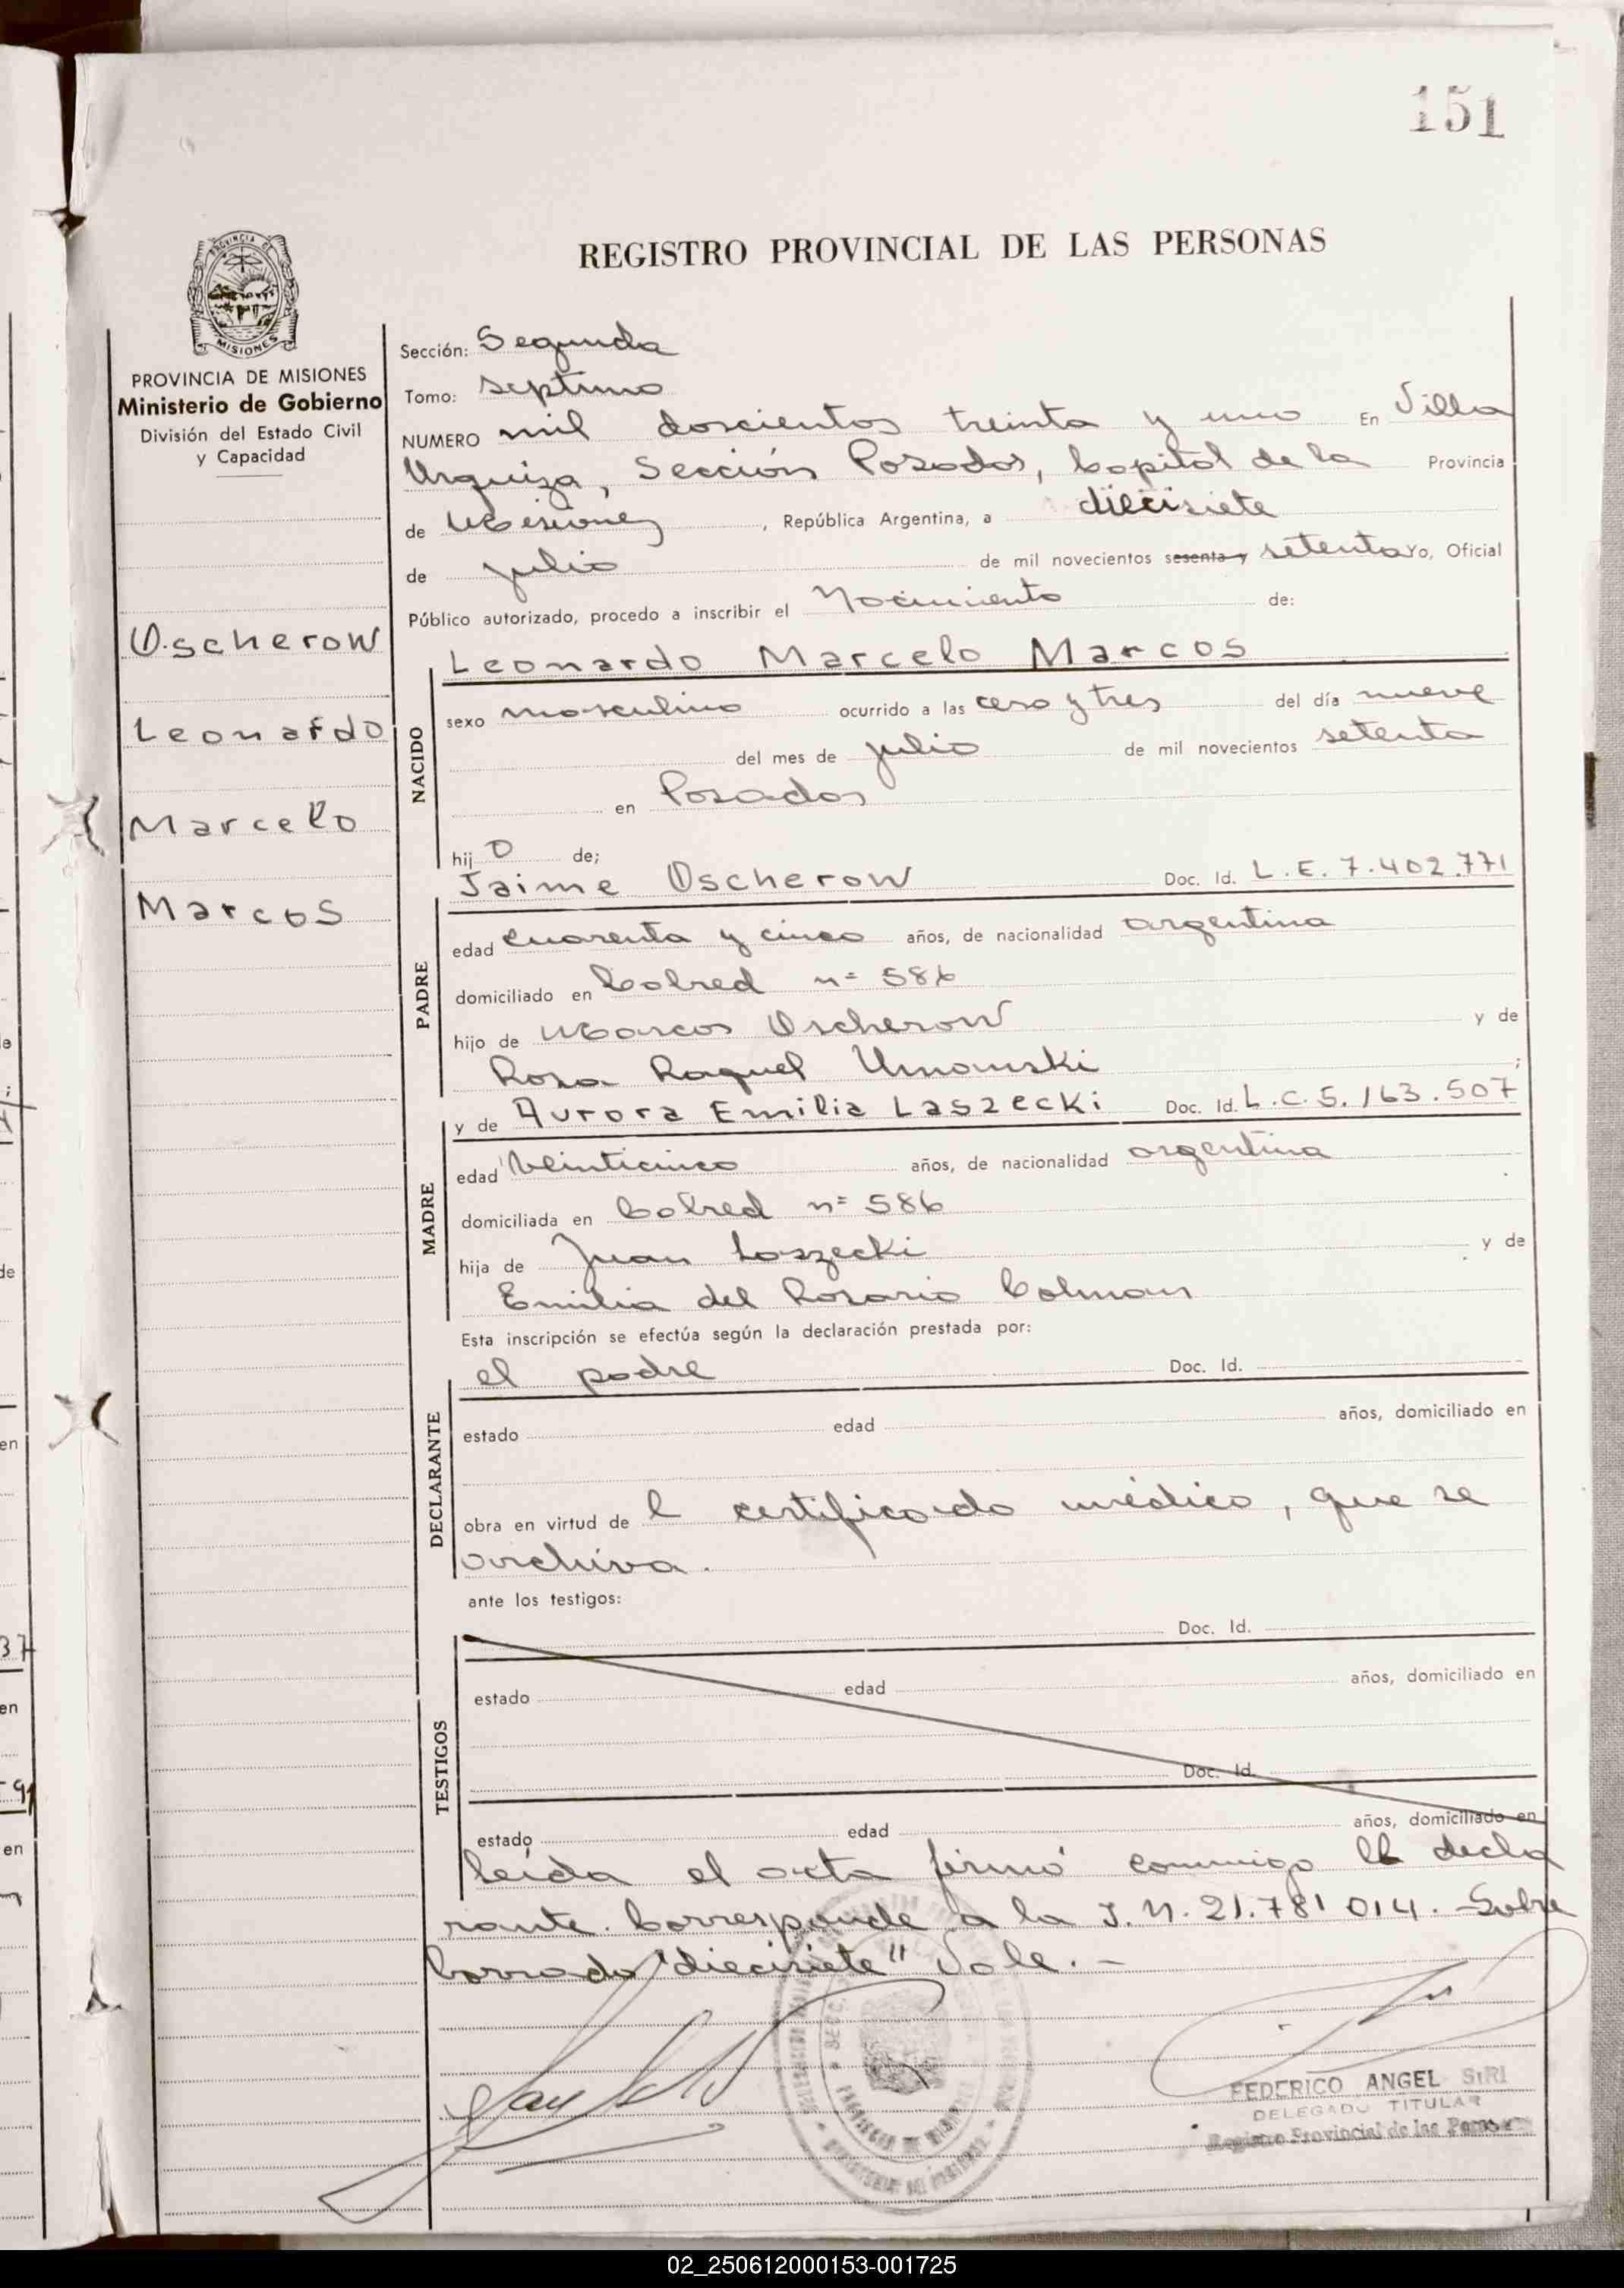 151
REGISTRO PROVINCIAL DE LAS PERSONAS
PROVINCIA DE MISIONES
Ministerio de Gobierno
División del Estado Civil
y Capacidad
Oscherow
Leonardo
Marcelo
Marcos
Sección: Segunda
Tomo: septimo
NUMERO mil doscientos treinta y uno En Villa
Urquiza, Sección Posadas, Capital de la Provincia
de Misiones, República Argentina, a diecisiete
de julio de mil novecientos sesenta y setenta Yo, Oficial
Público autorizado, procedo a inscribir el Nacimiento de:
Leonardo Marcelo Marcos
NACIDO
sexo masculino ocurrido a las cero y tres del día nueve
del mes de julio de mil novecientos setenta
en Posadas
hij o de;
Jaime Oscherow Doc. Id. L.E. 7.402.771
PADRE
edad cuarenta y cinco años, de nacionalidad argentina
domiciliado en Colred nº 586
hijo de Marcos Oscherow y de
Rosa Raquel ;
y de Aurora Emilia Laszecki Doc. Id. L.C. 5.163.507
MADRE
edad veinticinco años, de nacionalidad argentina
domiciliada en Colred nº 586
hija de Juan Laszecki y de
Emilia del Rosario Colman
Esta inscripción se efectúa según la declaración prestada por:
el padre Doc. Id.
DECLARANTE
estado edad años, domiciliado en
obra en virtud de l certificado médico, que se
archiva.
ante los testigos:
Doc. Id.
TESTIGOS
estado edad años, domiciliado en
Doc. Id.
estado edad años, domiciliado en
leída el acta firmó conmigo el decla
rante. Corresponde a la I.N. 21.781 014. - Sobre
borrado "diecisiete" Vale. -
FEDERICO ANGEL SIRI
DELEGADO TITULAR
Registro Provincial de las Personas
02_250612000153-001725